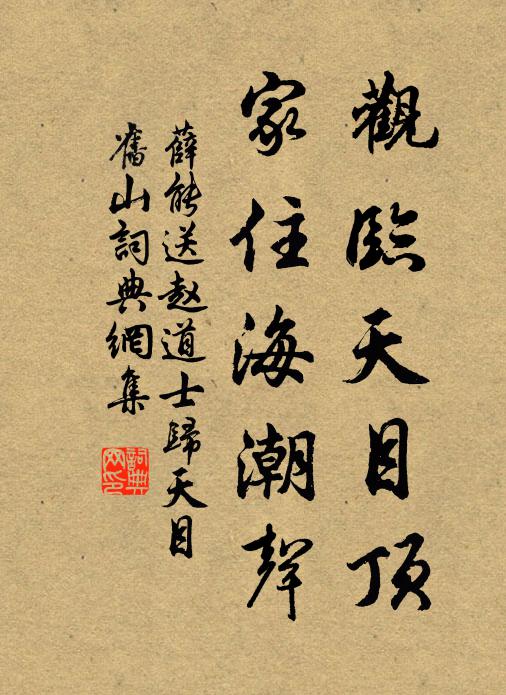 觀臨天目頂
家住海潮聲
薛能送赵道士歸天目
舊山詞典網集
詞典
网印